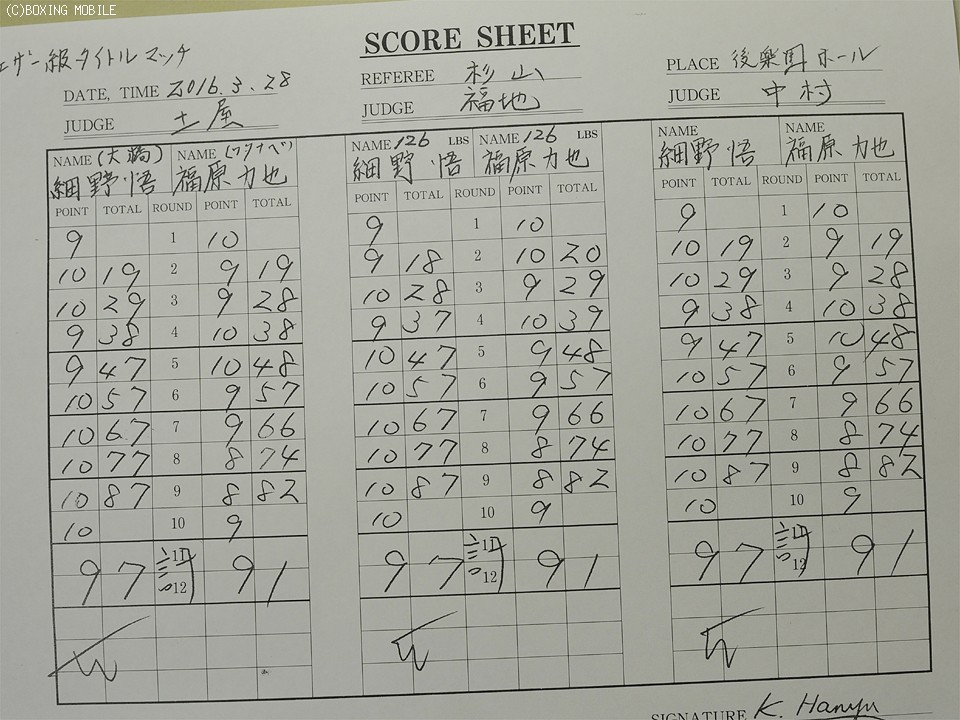 (C)BOXING MOBILE
ェザー級タイトルマッチ
SCORE SHEET
DATE, TIME 2016.3.28
REFEREE 杉山
PLACE 後楽園ホール
JUDGE 土屋
JUDGE 福地
JUDGE 中村
NAME (大橋) NAME (ワタナベ)
細野悟 福原力也
POINT TOTAL ROUND POINT TOTAL
9 1 10
10 19 2 9 19
10 29 3 9 28
9 38 4 10 38
9 47 5 10 48
10 57 6 9 57
10 67 7 9 66
10 77 8 8 74
10 87 9 8 82
10 10 9
97 11 12 91
NAME 126 LBS NAME 126 LBS
細野悟 福原力也
POINT TOTAL ROUND POINT TOTAL
9 1 10
9 18 2 10 20
10 28 3 9 29
9 37 4 10 39
10 47 5 9 48
10 57 6 9 57
10 67 7 9 66
10 77 8 8 74
10 87 9 8 82
10 10 9
97 11 12 91
NAME NAME
細野悟 福原力也
POINT TOTAL ROUND POINT TOTAL
9 1 10
10 19 2 9 19
10 29 3 9 28
9 38 4 10 38
9 47 5 10 48
10 57 6 9 57
10 67 7 9 66
10 77 8 8 74
10 87 9 8 82
10 10 9
97 11 12 91
SIGNATURE K. Hanyu